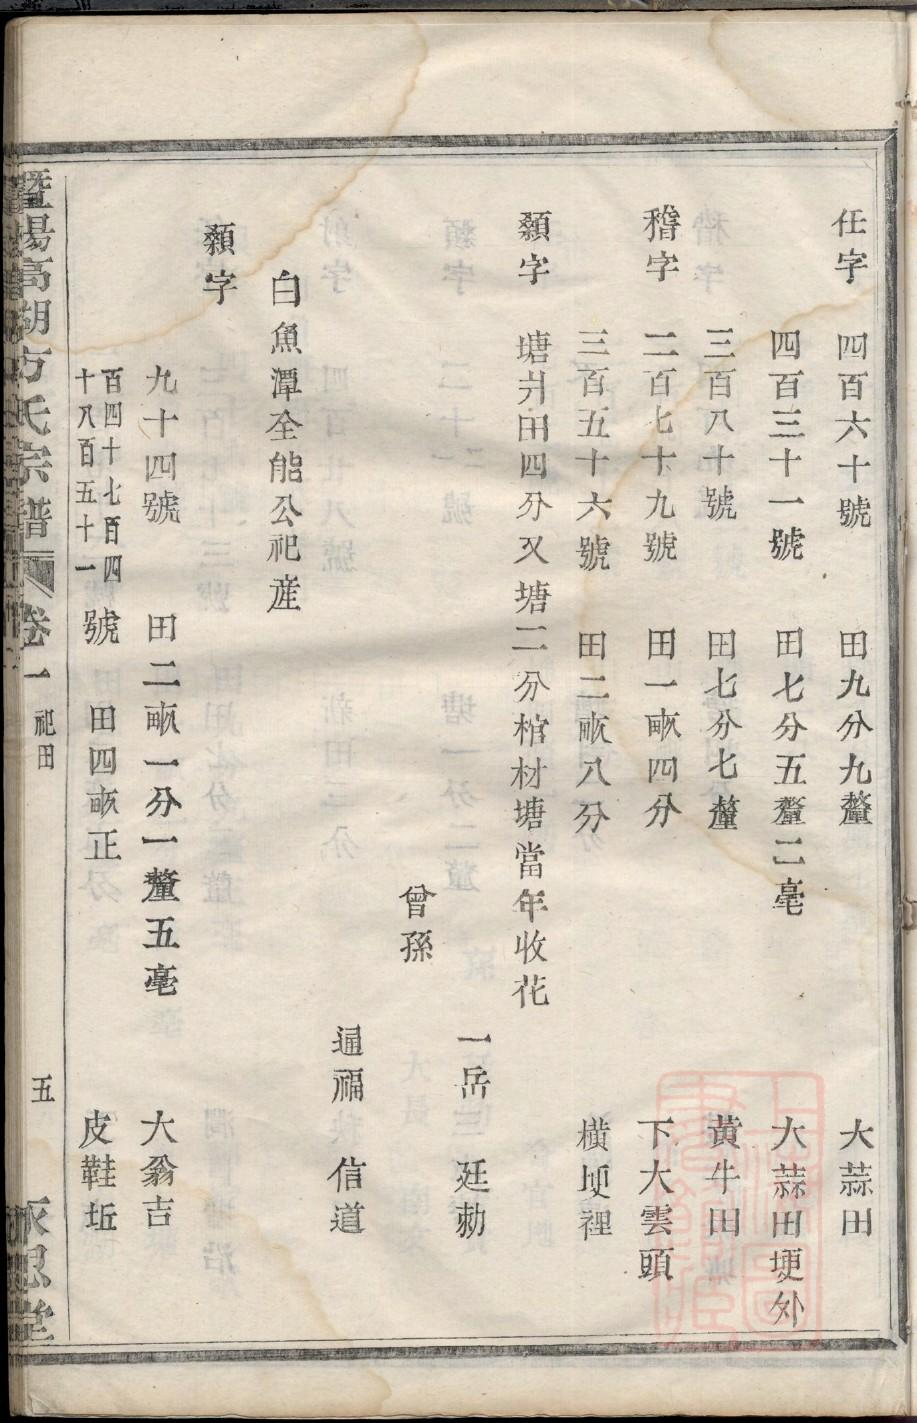 任字　四百六十號　田九分九釐　大蒜田
四百三十一號　田七分五釐二毫　大蒜田埂外
三百八十號　田七分七釐　黃牛田
稽字　二百七十九號　田一畝四分　下大雲頭
三百五十六號　田二畝八分　橫埂裡
纇字　塘井田四分又塘二分棺材塘當年收花
一岳　廷勑
曾孫
逼福　信道
白魚潭全能公祀産
纇字
九十四號　田二畝一分一釐五毫　大翁吉
百四十七百四
十八百五十一
號　田四畝正　皮鞋坵
暨陽高湖方氏宗譜　卷一　祀田　五　永思堂